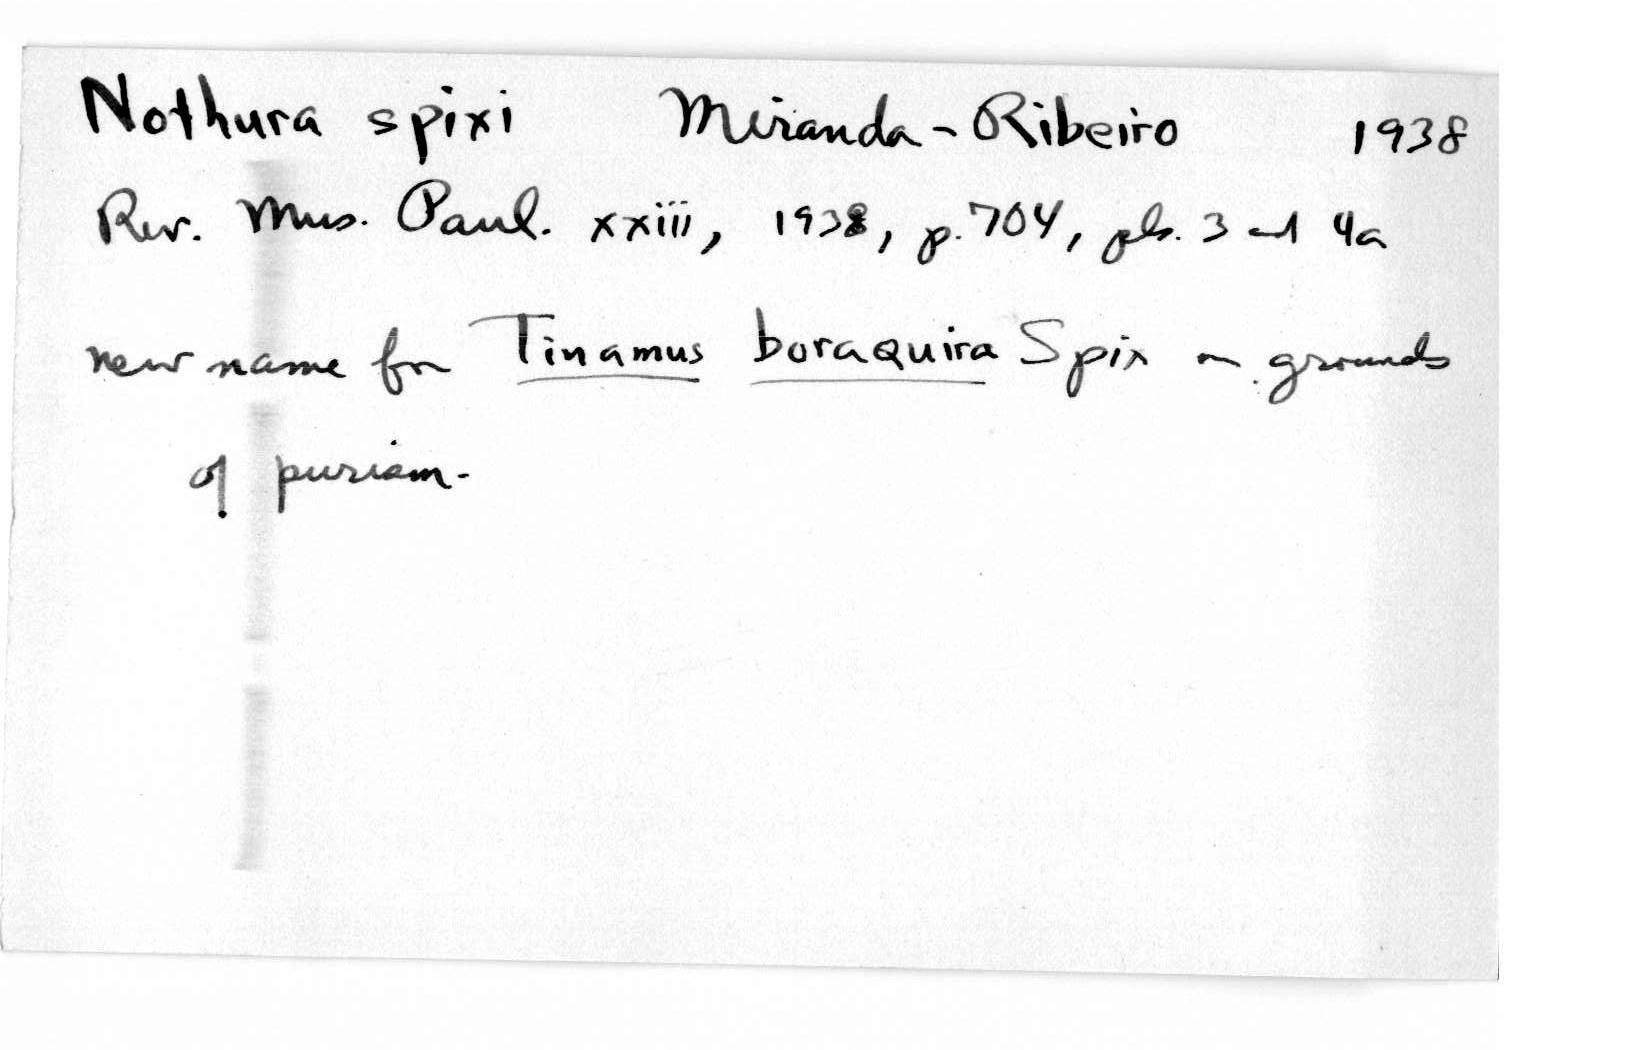 Nothura spixi Miranda-Ribeiro 1938
Rev. Mus. Paul. xxiii, 1938, p. 704, pls. 3 and 4a
new name for Tinamus boraquira Spix on grounds
of purism.